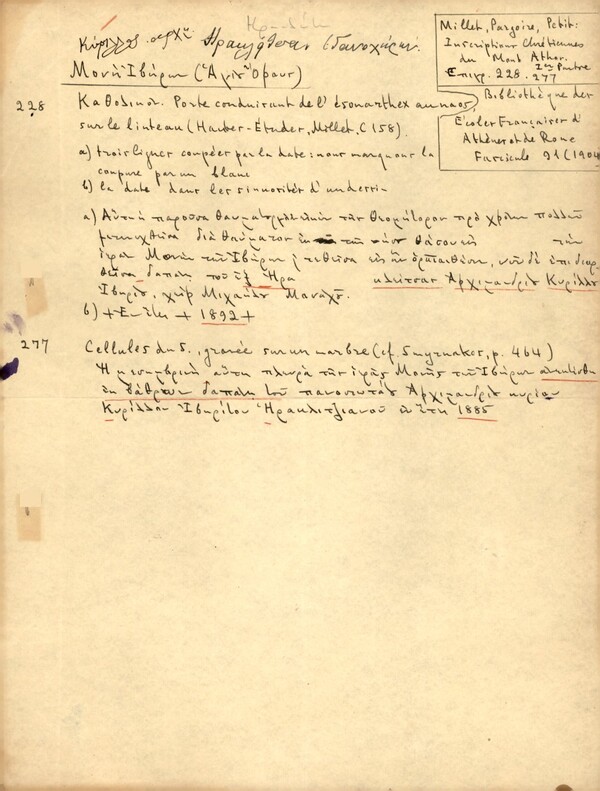 Κύριλλος αρχῦ Ηρακλίτσας (Γανοχώρων).
Μονὴ Ἰβήρων (Ἁγίου Ὄρους)
Millet, Pargoire, Petit:
Inscriptions Chrétiennes
du Mont Athos.
1ère Partie
Επιγρ. 228. 277
Bibliothèque des
Ecoles Françaises d'
Athènes et de Rome
Fascicule 91 (1904)
228 Καθολικον. Porte conduisant de l'ésonarthex au naos,
sur le linteau (Hautes-Études, Millet. C 158).
a) trois lignes coupées par la date: nous marquons la
coupure par un blanc
b) la date dans les sinuosités d'un dessin
a) Αὕτη ἡ παροῦσα τῆς Θεομήτορος πρὸ χρόνων πολλῶν
διὰ θαύματος ἐκ τῆς
ἱερᾶς Μονῆς τῶν Ἰβήρων
δαπάνῃ τοῦ ἐξ Ἡρα κλείτσας Ἀρχιμανδρίτ Κυρίλλου
Ἰβηρίτ, χεὶρ Μιχαὴλ Μοναχοῦ.
b) + Εν ἔτει + 1892 +
277 Cellules du S., gravée sur un marbre (cf. Smyrnakes, p. 464)
Ἡ μεσημβρινὴ αὕτη πλευρὰ τῆς ἱερᾶς Μονῆς τῶν Ἰβήρων ἀνεκτίσθη
ἐκ βάθρων δαπάνῃ τοῦ πανοσιωτάτ Ἀρχιμανδρίτ κυρίου
Κυρίλλου Ἰβηρίτου Ἡρακλιτζιανοῦ ἐν ἔτη 1885